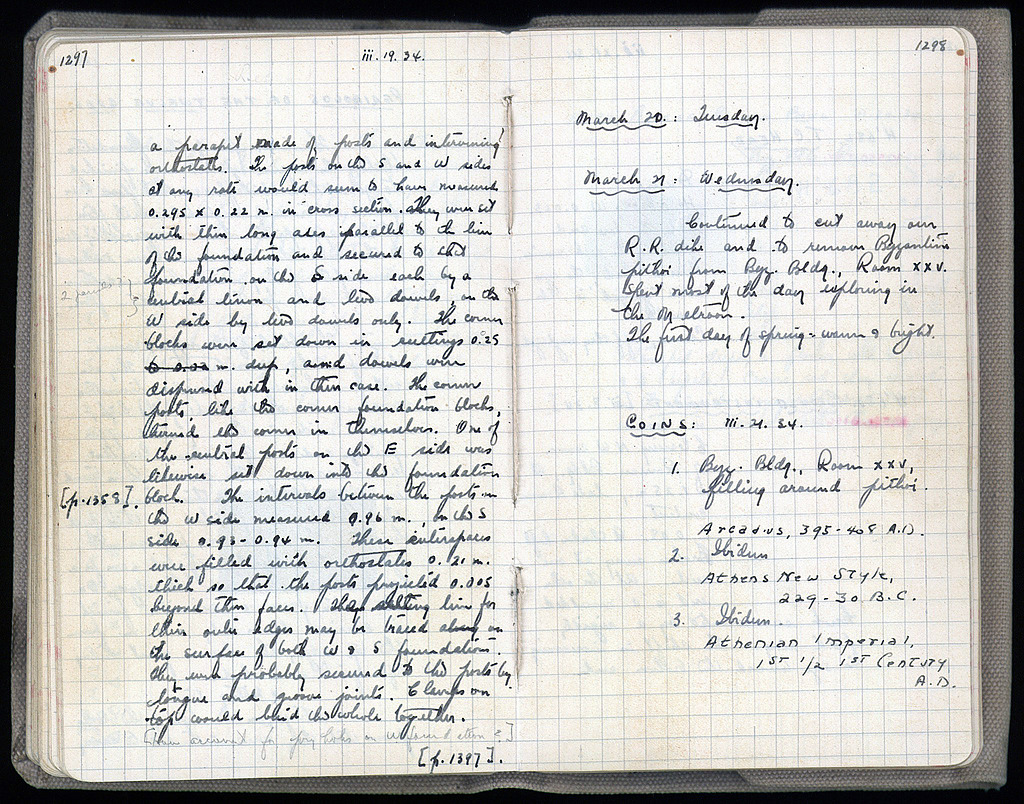 1297
iii. 19. 34.
a parapet made of posts and intervening
orthostates. The posts on the S and W sides
at any rate would seem to have measured
0.295 x 0.22 m. in cross section. They were set
with their long axes parallel to the line
of the foundation and secured to that
foundation, on the S side each by a
central tenon and two dowels, on the
W side by two dowels only. The corner
blocks were set down in cuttings 0.25
to 0.02 m. deep, and dowels were
dispensed with in their case. The corner
posts, like the corner foundation blocks,
turned the corner in themselves. One of
the central posts on the E side was
likewise set down into the foundation
[p. 1358]. block. The intervals between the posts on
the W side measured 0.96 m., on the S
side 0.93-0.94 m. These interspaces
were filled with orthostates 0.21 m.
thick so that the posts projected 0.005
beyond their faces. The setting line for
their outer edges may be traced along on
the surface of both W & S foundation.
They were probably secured to the posts by
tongue and groove joints. Clamps on
top would bind the whole together.
[How account for pry holes on W foundation?]
[p. 1397].
1298
March 20: Tuesday.
March 21: Wednesday.
Continued to cut away our
R.R. dike and to remove Byzantine
pithoi from Byz. Bldg., Room XXV.
Spent most of the day exploring in
the Metroon.
The first day of spring - warm & bright.
COINS: iii. 21. 34.
1. Byz. Bldg., Room XXV,
filling around pithoi.
Arcadius, 395-408 A.D.
2. Ibidem
Athens New Style,
229-30 B.C.
3. Ibidem.
Athenian Imperial,
1st 1/2 1st Century
A.D.